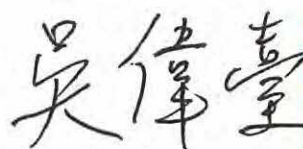 吳偉臺